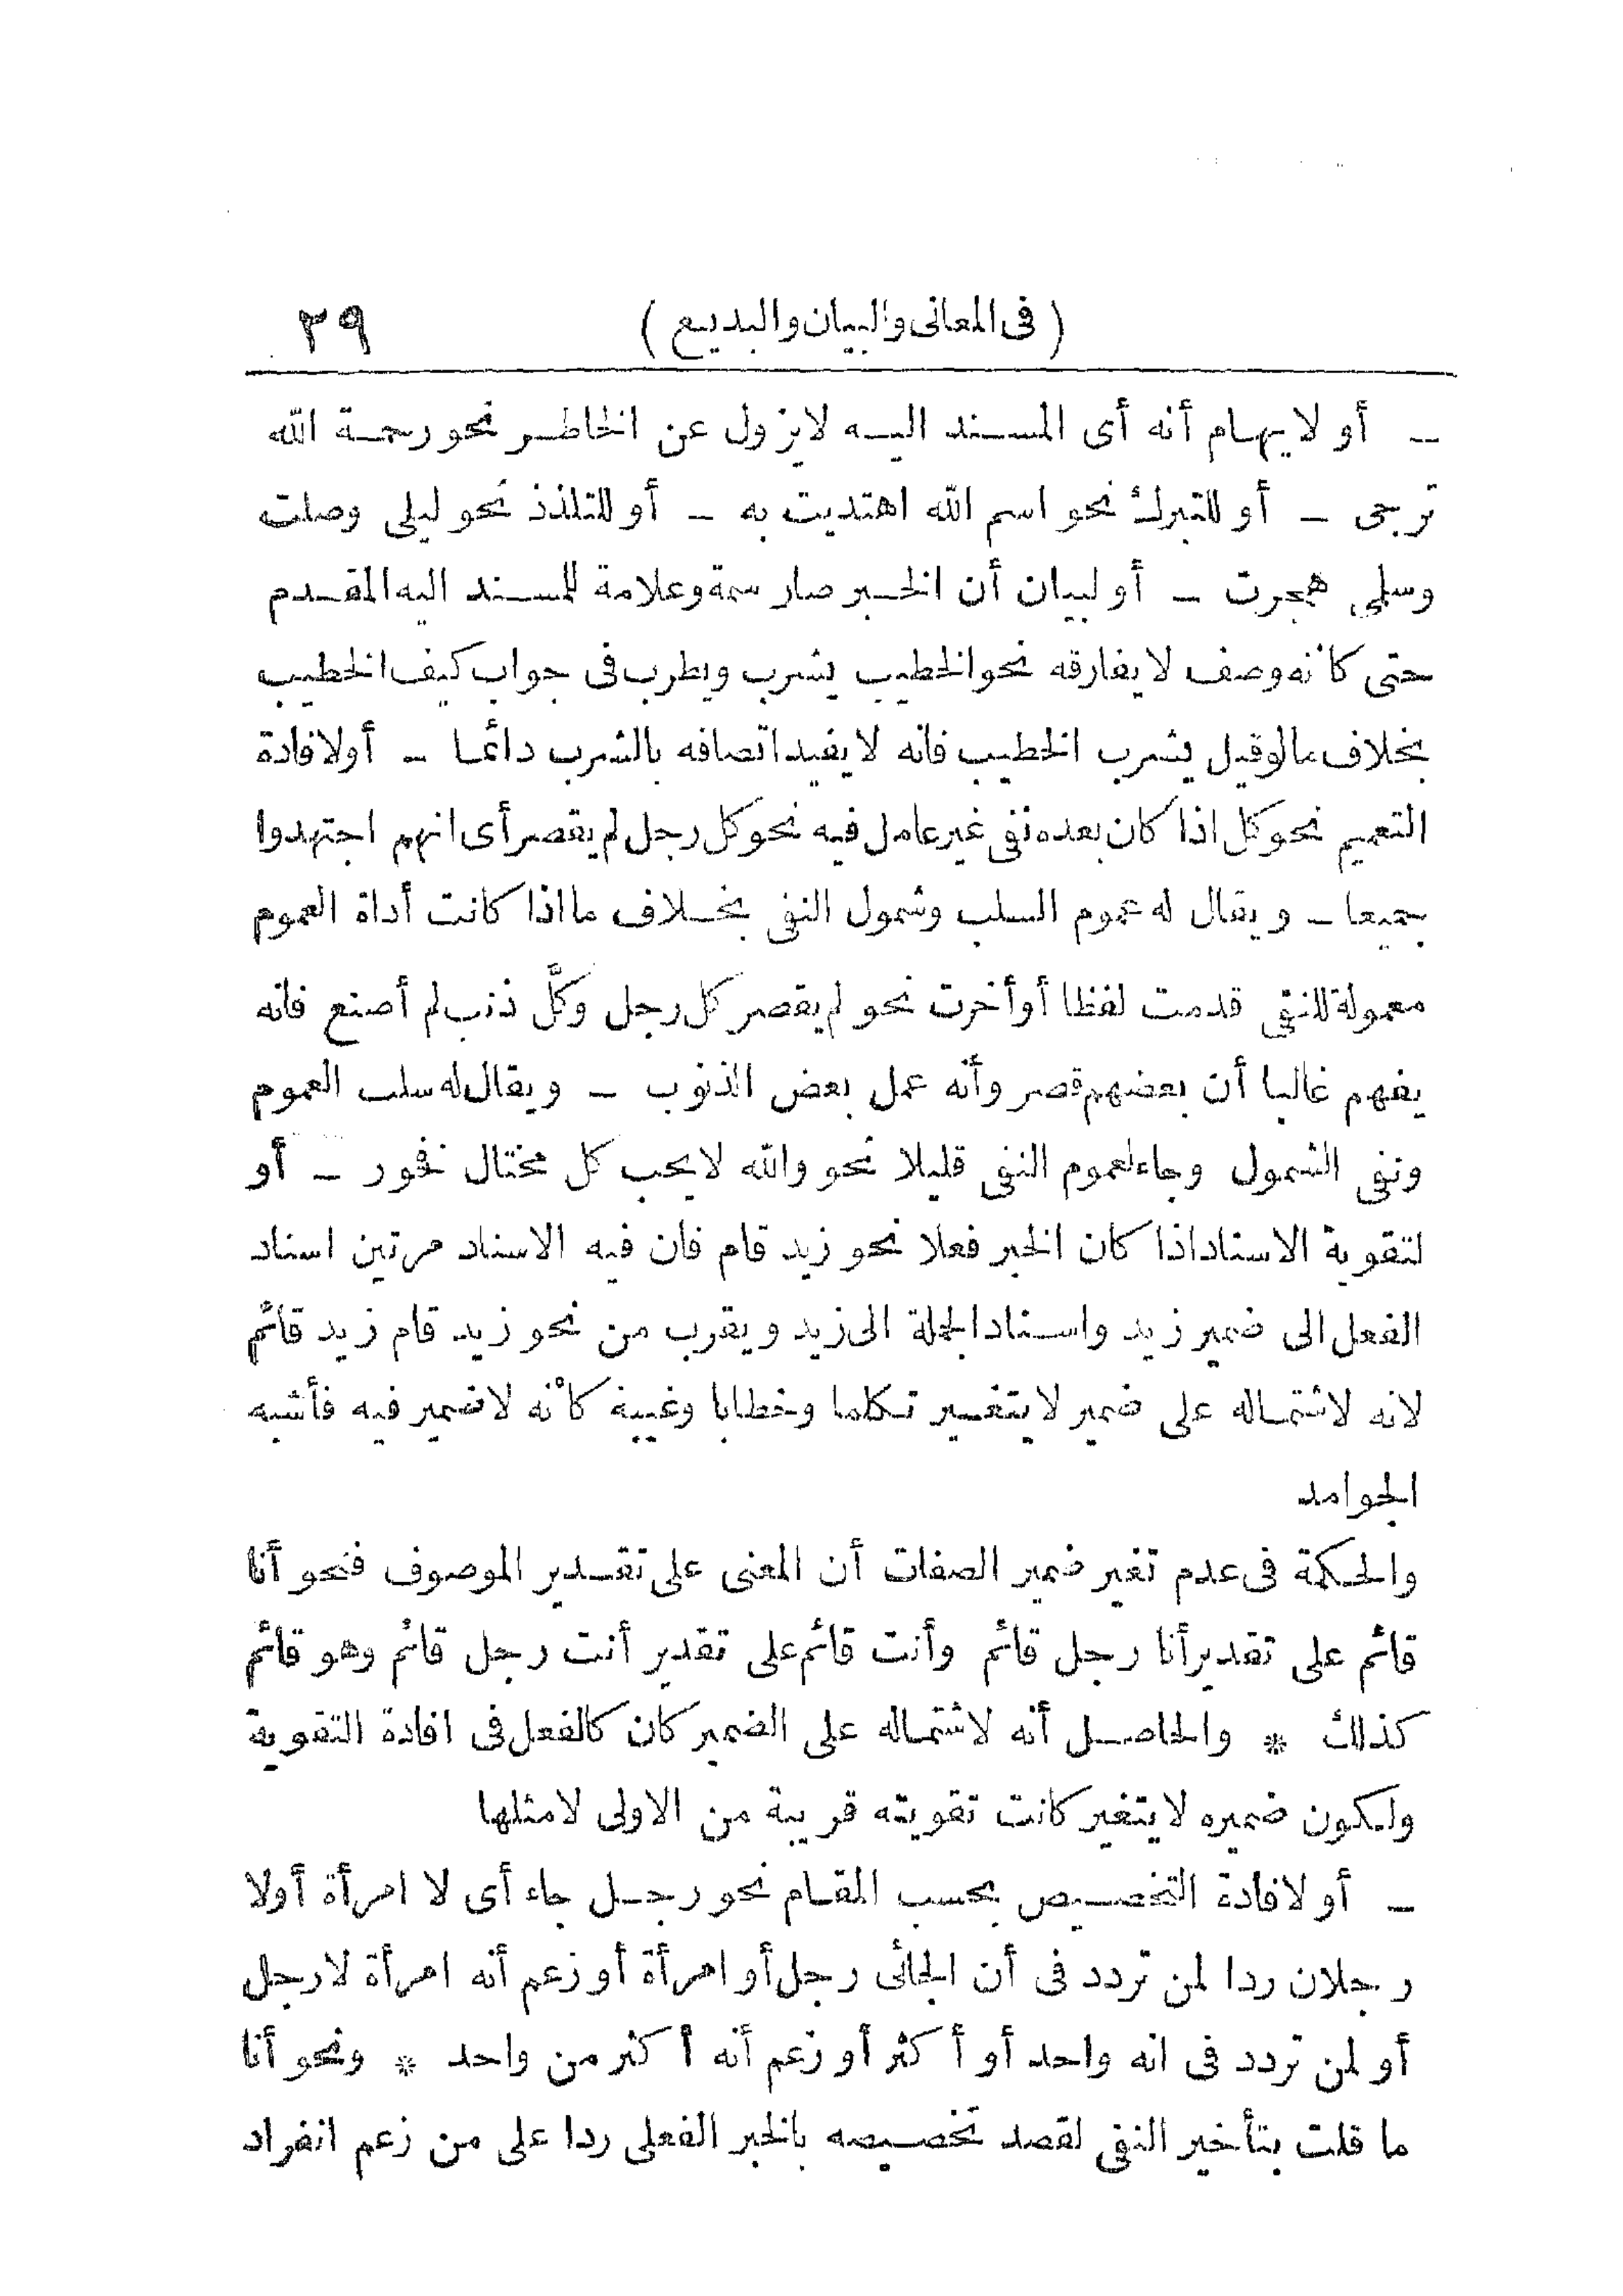 ( فى المعانى والبيان والبديع ) ٣٩
ـ أو لايهام أنه أى المسند اليه لا يزول عن الخاطر نحو رحمة الله
ترجى ـ أو للتبرك نحو اسم الله اهتديت به ـ أو للتلذذ نحو ليلى وصلت
وسلمى هجرت ـ أو لبيان أن الخبر صار سمة وعلامة للمسند اليه المقدم
حتى كأنه وصف لا يفارقه نحو الخطيب يشرب ويطرب فى جواب كيف الخطيب
بخلاف مالو قيل يشرب الخطيب فانه لا يفيد اتصافه بالشرب دائما ـ أو لافادة
التعميم نحو كل اذا كان بعده نفى غير عامل فيه نحو كل رجل لم يقصر أى انهم اجتهدوا
جميعا ـ ويقال له عموم السلب وشمول النفى بخلاف ما اذا كانت أداة العموم
معمولة للنفى قدمت لفظا أو أخرت نحو لم يقصر كل رجل وكلَّ ذنب لم أصنع فانه
يفهم غالبا أن بعضهم قصر وأنه عمل بعض الذنوب ـ ويقال له سلب العموم
ونفى الشمول وجاء لعموم النفى قليلا نحو والله لا يحب كل مختال فخور ـ أو
لتقوية الاسناد اذا كان الخبر فعلا نحو زيد قام فان فيه الاسناد مرتين اسناد
الفعل الى ضمير زيد واسناد الجملة الى زيد ويقرب من نحو زيد قام زيد قائم
لانه لاشتماله على ضمير لا يتغير تكلما وخطابا وغيبة كأنه لا ضمير فيه فأشبه
الجوامد
والحكمة فى عدم تغير ضمير الصفات أن المعنى على تقدير الموصوف فنحو أنا
قائم على تقدير أنا رجل قائم وأنت قائم على تقدير أنت رجل قائم وهو قائم
كذلك * والحاصل أنه لاشتماله على الضمير كان كالفعل فى افادة التقوية
ولكون ضميره لا يتغير كانت تقويته قريبة من الاولى لا مثلها
ـ أو لافادة التخصيص بحسب المقام نحو رجل جاء أى لا امرأة أولا
رجلان ردا لمن تردد فى أن الجائى رجل أو امرأة أو زعم أنه امرأة لا رجل
أو لمن تردد فى انه واحد أو أكثر أو زعم أنه أكثر من واحد * ونحو أنا
ما قلت بتأخير النفى لقصد تخصيصه بالخبر الفعلى ردا على من زعم انفراد